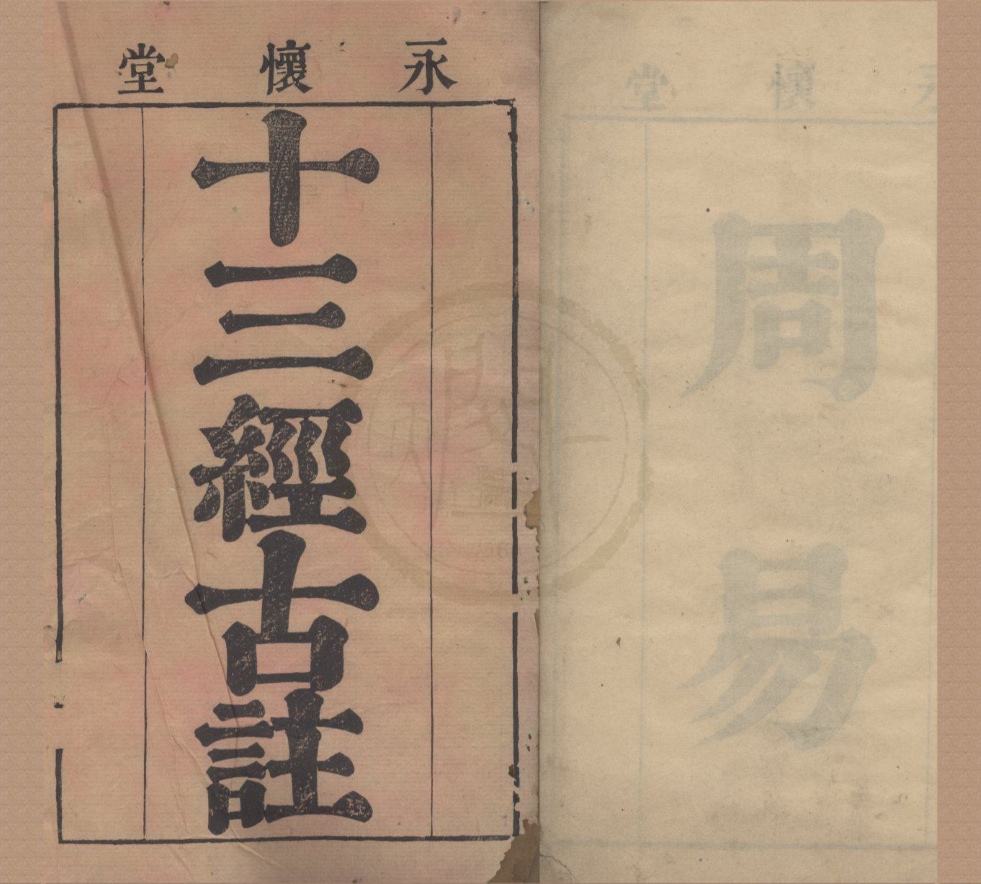 永懷堂
十三經古註
永懷堂
周易